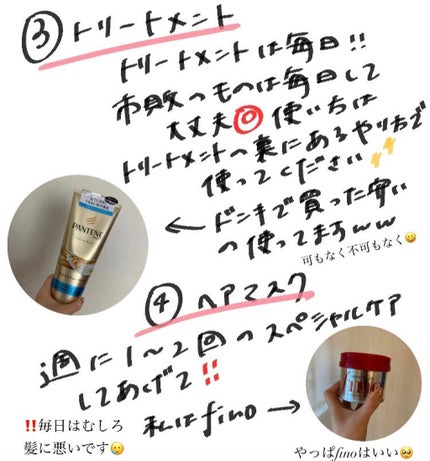 ③トリートメント
トリートメントは毎日!!
市販のものは毎日して
大丈夫◎使い方は
トリートメントの裏にあるやり方で
使ってください
←ドンキで買った安い
の使ってますww
可もなく不可もなく
PANTENE
④ヘアマスク
週に1〜2回のスペシャルケア
してあげて!!
私はfino→
!!毎日はむしろ
髪に悪いです
やっぱfinoはいい